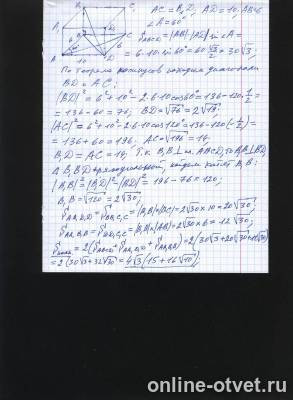 B₁ C₁
A₁ D₁
B C
A 10 D
AC = B₁D, AD = 10, AB = 6
∠A = 60°
S_ABCD = |AB|·|AD| sin∠A =
= 6·10 sin 60° = 60 √3/2 = 30√3;
По теореме косинусов находим диагонали
BD и AC;
|BD|² = 6² + 10² - 2·6·10 cos60° = 136 - 120·1/2 =
= 136 - 60 = 76; BD = √76 = 2√19;
|AC|² = 6² + 10² - 2·6·10 cos120° = 136 - 120(-1/2) =
= 136 + 60 = 196; AC = √196 = 14,
B₁D = AC = 14. Т.к. B₁B ⊥ пл. ABCD, то B₁B ⊥ BD
Δ B₁BD прямоугольный, найдем катет B₁B:
|B₁B|² = |B₁D|² - |BD|² = 196 - 76 = 120;
B₁B = √120 = 2√30;
S_AA₁D₁D = S_BB₁C₁C = |B₁B|·|BC| = 2√30 × 10 = 20√30;
S_AA₁B₁B = S_DD₁C₁C = |B₁B|·|AB| = 2√30 × 6 = 12√30;
S = 2(S_ABCD + S_AA₁D₁D + S_AA₁B₁B) = 2(30√3 + 20√30 + 12√30)
= 2(30√3 + 32√30) = 4√3(15 + 16√10);
online-otvet.ru